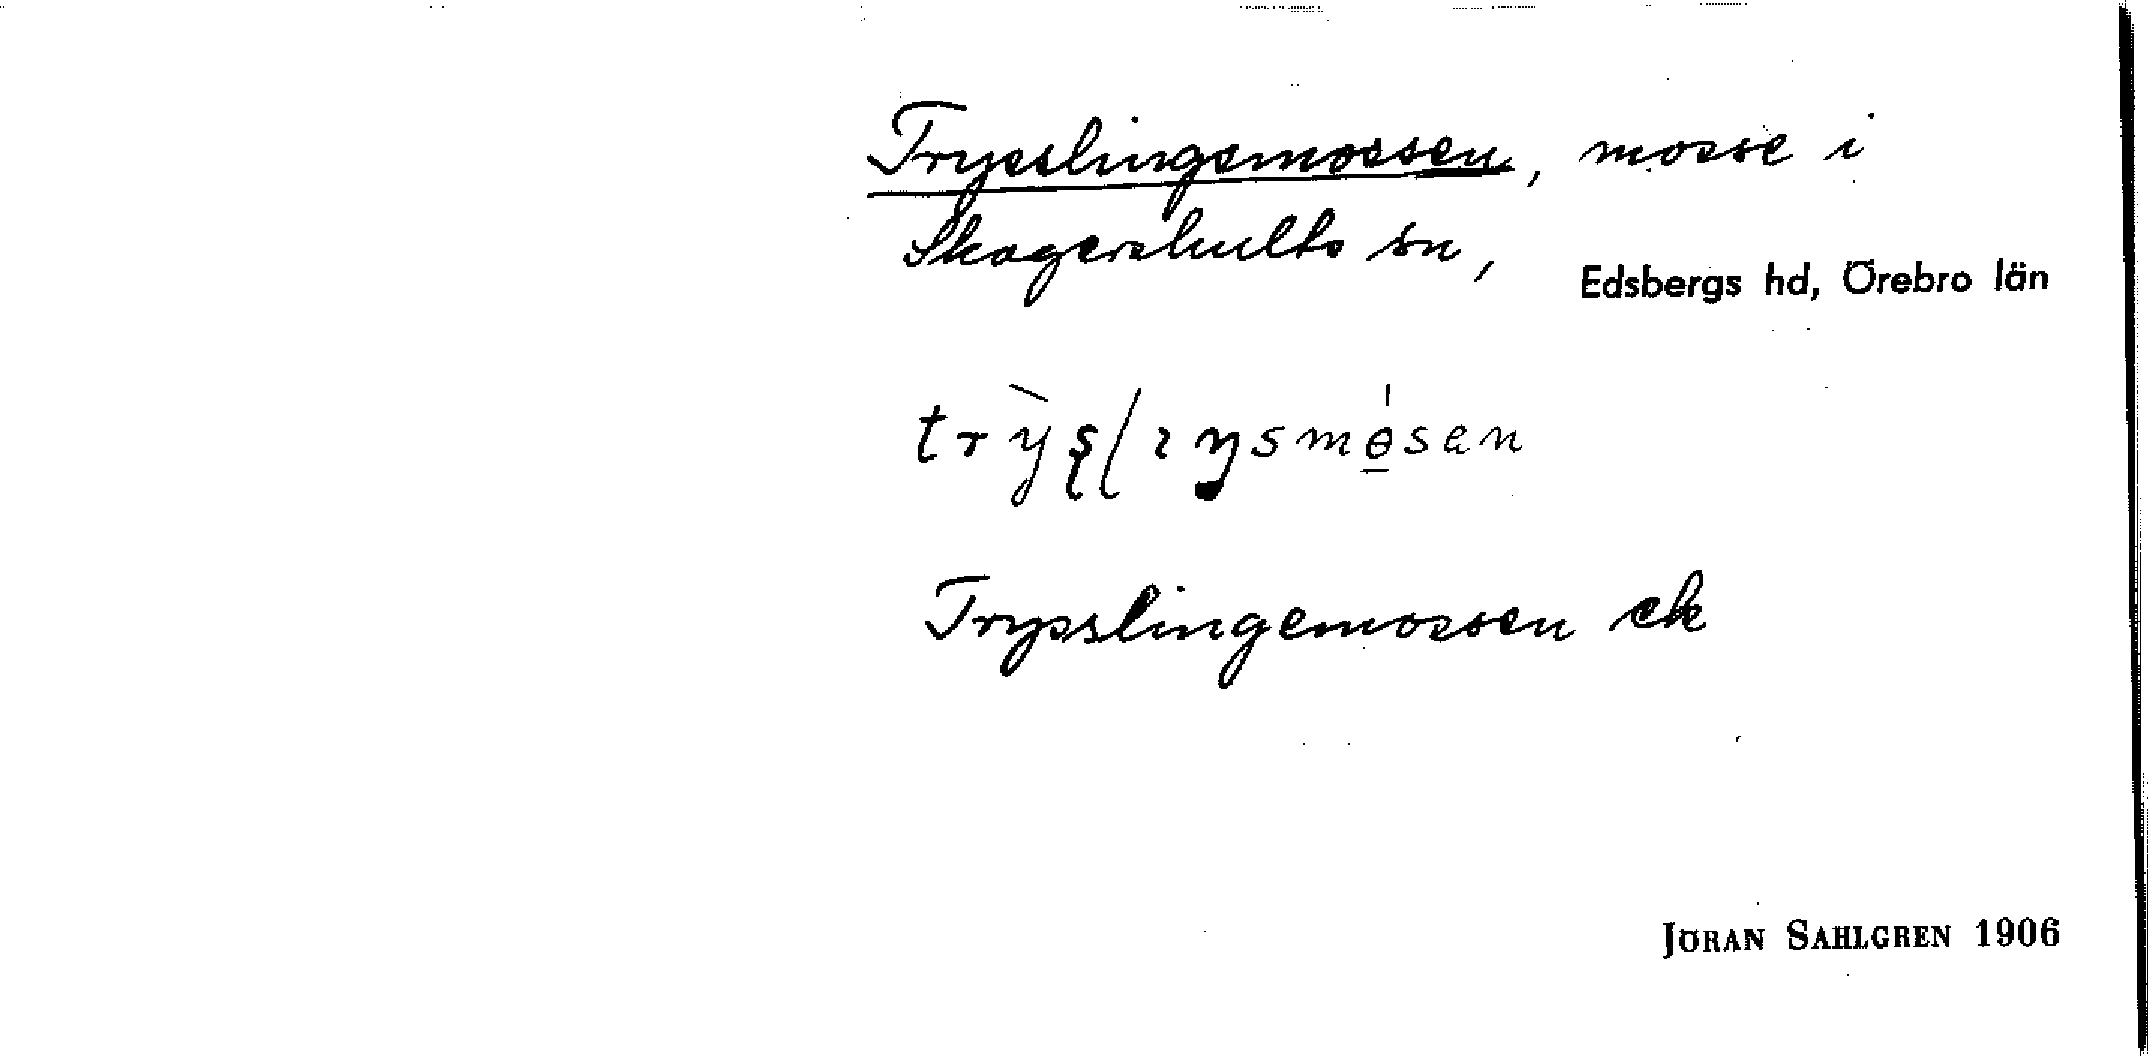 Trysslingemossen, mosse i
Skagershults sn,
Edsbergs hd, Örebro län
trỳʂɭıŋsmɵ̱́sen
Trysslingemossen ek
JÖRAN SAHLGREN 1906